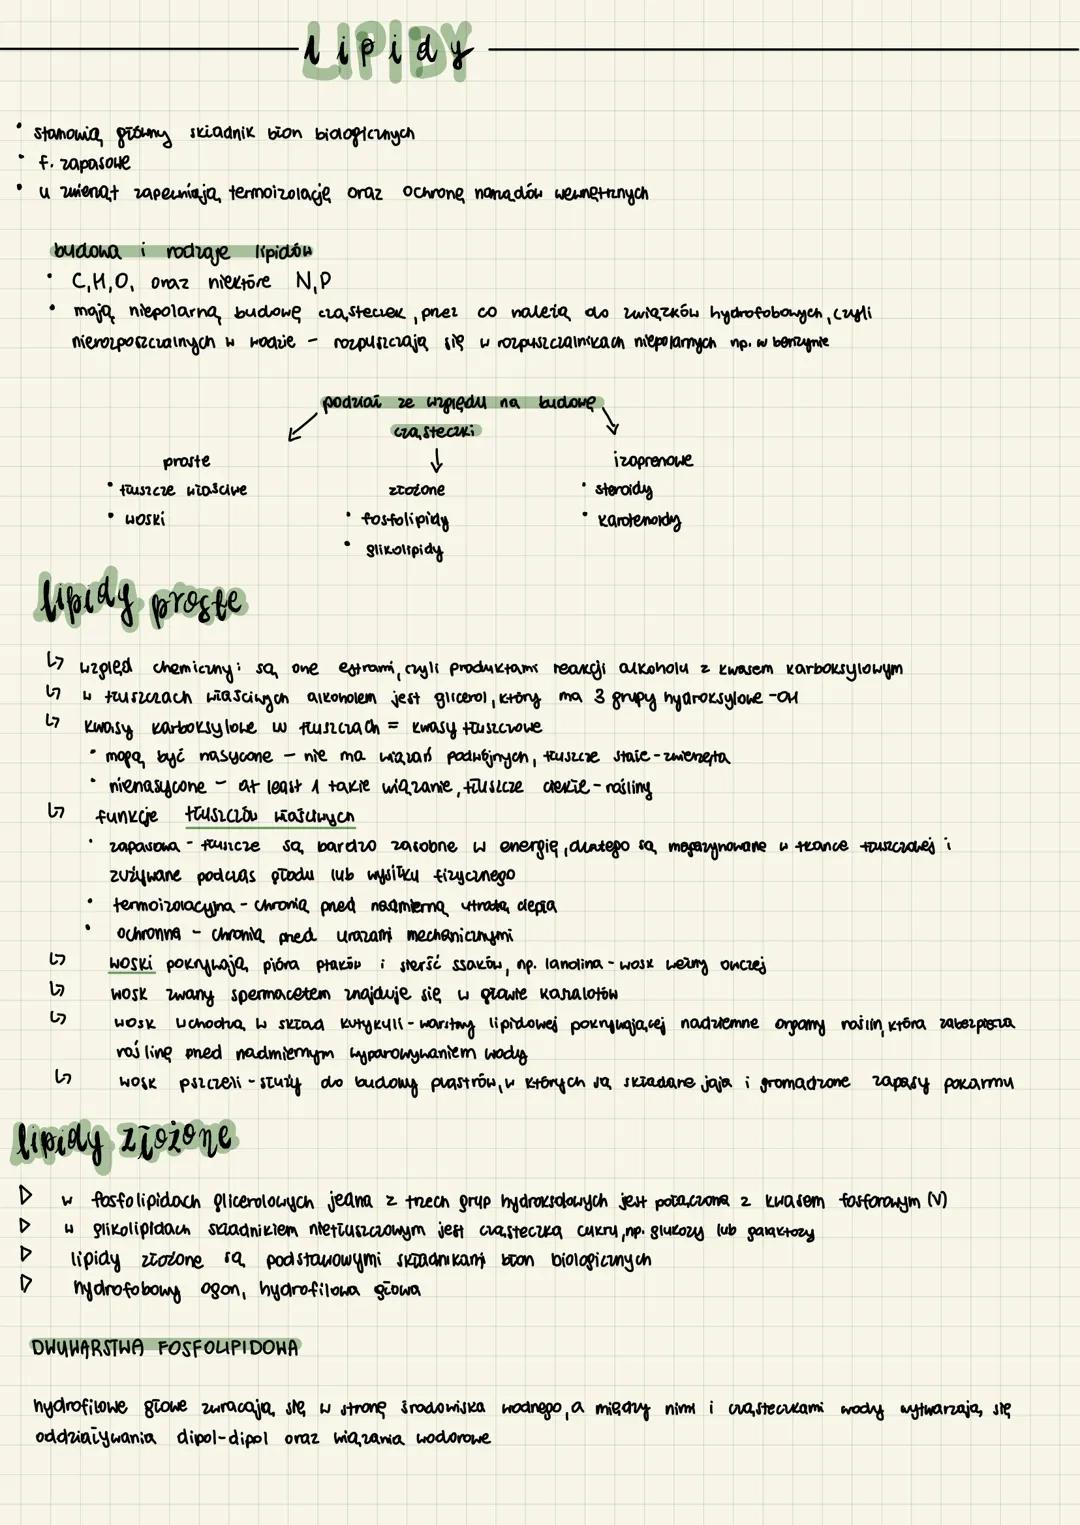 lipidy
• stanowią główny składnik błon biologicznych
• f. zapasowe
• u zwierząt zapewniają termoizolację oraz ochronę narządów wewnętrznych
budowa i rodzaje lipidów
• C,H,O, oraz niektóre N,P
• mają niepolarną budowę cząsteczek, przez co należą do związków hydrofobowych, czyli
nierozpuszczalnych w wodzie - rozpuszczają się w rozpuszczalnikach niepolarnych np. w benzynie
podział ze względu na budowę
cząsteczki
proste
• tłuszcze właściwe
• woski
złożone
• fosfolipidy
• glikolipidy
izoprenowe
• steroidy
• karotenoidy
lipidy proste
↳ wzgląd chemiczny: są one estrami, czyli produktami reakcji alkoholu z kwasem karboksylowym
↳ w tłuszczach właściwych alkoholem jest glicerol, który ma 3 grupy hydroksylowe -OH
↳ kwasy karboksylowe w tłuszczach = kwasy tłuszczowe
• mogą być nasycone - nie ma wiązań podwójnych, tłuszcze stałe - zwierzęta
• nienasycone - at least 1 takie wiązanie, tłuszcze ciekłe - rośliny
↳ funkcje tłuszczów właściwych
• zapasowa - tłuszcze są bardzo zasobne w energię, dlatego są magazynowane w tkance tłuszczowej i
zużywane podczas głodu lub wysiłku fizycznego
• termoizolacyjna - chronią przed nadmierną utratą ciepła
• ochronna - chronią przed urazami mechanicznymi
↳ woski pokrywają pióra ptaków i sierść ssaków, np. lanolina - wosk wełny owczej
↳ wosk zwany spermacetem znajduje się w głowie kaszalotów
↳ wosk wchodzą w skład kutykuli - warstwy lipidowej pokrywającej nadziemne organy roślin, która zabezpiecza
roślinę przed nadmiernym wyparowywaniem wody
↳ wosk pszczeli - służy do budowy plastrów, w których są składane jaja i gromadzone zapasy pokarmu
lipidy złożone
▷ w fosfolipidach glicerolowych jedna z trzech grup hydroksolowych jest połączona z kwasem fosforowym (V)
▷ w glikolipidach składnikiem nietłuszczowym jest cząsteczka cukru, np. glukozy lub galaktozy
▷ lipidy złożone są podstawowymi składnikami błon biologicznych
▷ hydrofobowy ogon, hydrofilowa głowa
DWUWARSTWA FOSFOLIPIDOWA
hydrofilowe głowe zwracają się w stronę środowiska wodnego, a między nimi i cząsteczkami wody wytwarzają się
oddziaływania dipol-dipol oraz wiązania wodorowe